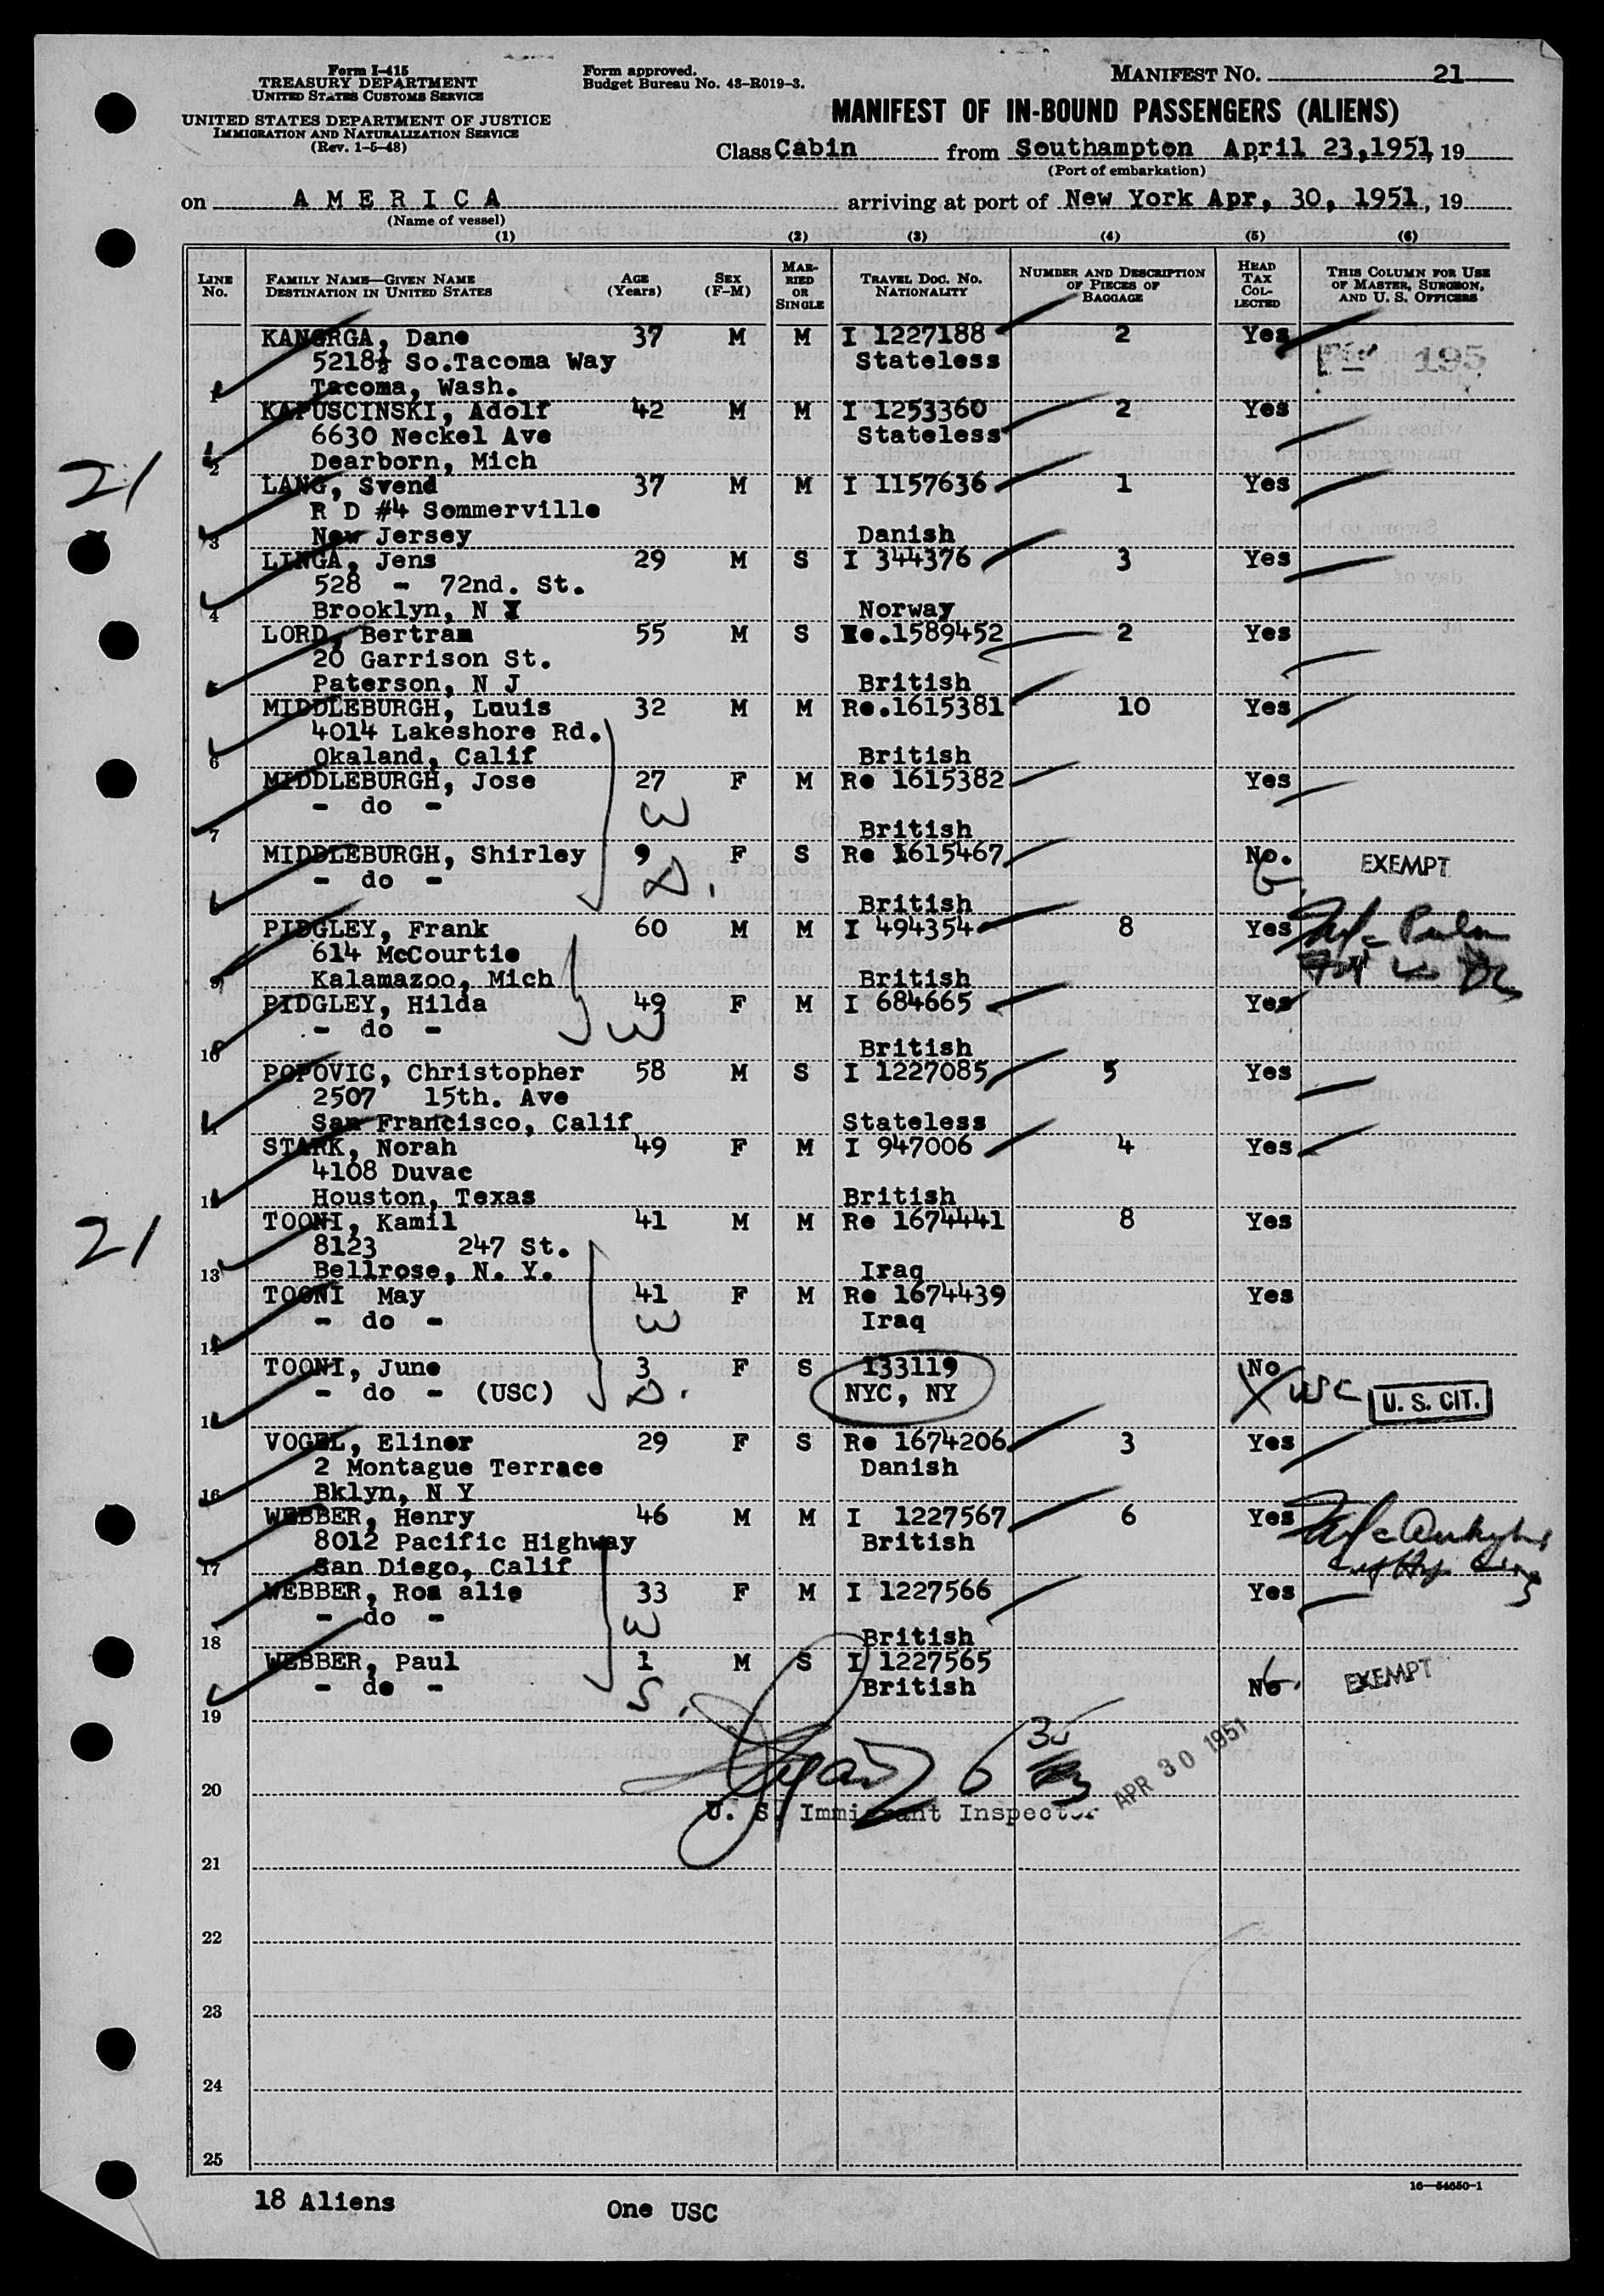 Form I-415
TREASURY DEPARTMENT
UNITED STATES CUSTOMS SERVICE
UNITED STATES DEPARTMENT OF JUSTICE
IMMIGRATION AND NATURALIZATION SERVICE
(Rev. 1-5-48)
Form approved.
Budget Bureau No. 43-R019-3.
MANIFEST NO. 21
MANIFEST OF IN-BOUND PASSENGERS (ALIENS)
Class Cabin from Southampton April 23,1951, 19
(Port of embarkation)
on A M E R I C A arriving at port of New York Apr, 30, 1951, 19
(Name of vessel)
(1) (2) (3) (4) (5) (6)
LINE No. FAMILY NAME—GIVEN NAME DESTINATION IN UNITED STATES AGE (Years) SEX (F-M) MARRIED OR SINGLE TRAVEL DOC. NO. NATIONALITY NUMBER AND DESCRIPTION OF PIECES OF BAGGAGE HEAD TAX COLLECTED THIS COLUMN FOR USE OF MASTER, SURGEON, AND U. S. OFFICERS
KANGRGA, Dane 37 M M I 1227188 2 Yes
5218½ So.Tacoma Way Stateless 195
1 Tacoma, Wash.
KAPUSCINSKI, Adolf 42 M M I 1253360 2 Yes
6630 Neckel Ave Stateless
2 Dearborn, Mich
21
LANG, Svend 37 M M I 1157636 1 Yes
R D #4 Sommerville
3 New Jersey Danish
LINGA, Jens 29 M S I 344376 3 Yes
528 - 72nd. St.
4 Brooklyn, N Y Norway
LORD, Bertram 55 M S Re.1589452 2 Yes
20 Garrison St.
Paterson, N J British
MIDDLEBURGH, Louis 32 M M Re.1615381 10 Yes
4014 Lakeshore Rd.
6 Okaland, Calif British
MIDDLEBURGH, Jose 27 F M Re 1615382 Yes
- do - W
7 British
MIDDLEBURGH, Shirley 9 F S Re 1615467 No. EXEMPT
- do - D.
British
PIDGLEY, Frank 60 M M I 494354 8 Yes
614 McCourtie
9 Kalamazoo, Mich British
PIDGLEY, Hilda 49 F M I 684665 Yes
- do - W
10 British
POPOVIC, Christopher 58 M S I 1227085 5 Yes
2507 15th. Ave
11 San Francisco, Calif Stateless
STARK, Norah 49 F M I 947006 4 Yes
4108 Duvac
12 Houston, Texas British
21
TOONI, Kamil 41 M M Re 1674441 8 Yes
8123 247 St.
13 Bellrose, N. Y. Iraq
TOONI May 41 F M Re 1674439 Yes
- do - W Iraq
14
TOONI, June 3 F S 133119 No
- do - (USC) D. NYC, NY USC U. S. CIT.
15
VOGEL, Elinor 29 F S Re 1674206 3 Yes
2 Montague Terrace Danish
16 Bklyn, N Y
WEBBER, Henry 46 M M I 1227567 6 Yes
8012 Pacific Highway British
17 San Diego, Calif
WEBBER, Rosalie 33 F M I 1227566 Yes
- do - W
18 British
WEBBER, Paul 1 M S I 1227565
- do - S. British No EXEMPT
19
20 APR 30 1951
U. S. Immigrant Inspector
21
22
23
24
25
16—54650-1
18 Aliens One USC